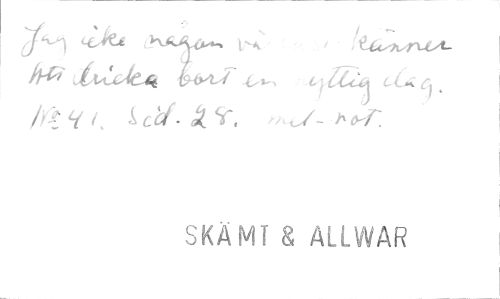 Jag icke någon känner
Att dricka bort en nyttig dag.
No 41. Sid. 28. mel-not.
SKÄMT & ALLWAR